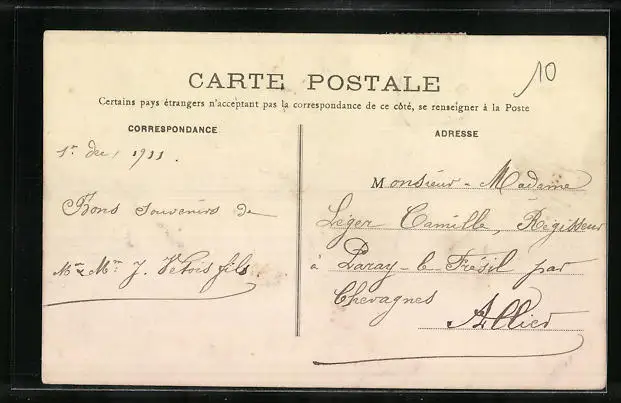 10
CARTE POSTALE
Certains pays étrangers n'acceptent pas la correspondance de ce côté, se renseigner à la Poste
CORRESPONDANCE
1er dec 1911.
Bons souvenirs de
Mr & Mme J. Vetois fils.
ADRESSE
Monsieur - Madame
Léger Camille, Régisseur
à Paray-le-Frésil par
Chevagnes
Allier